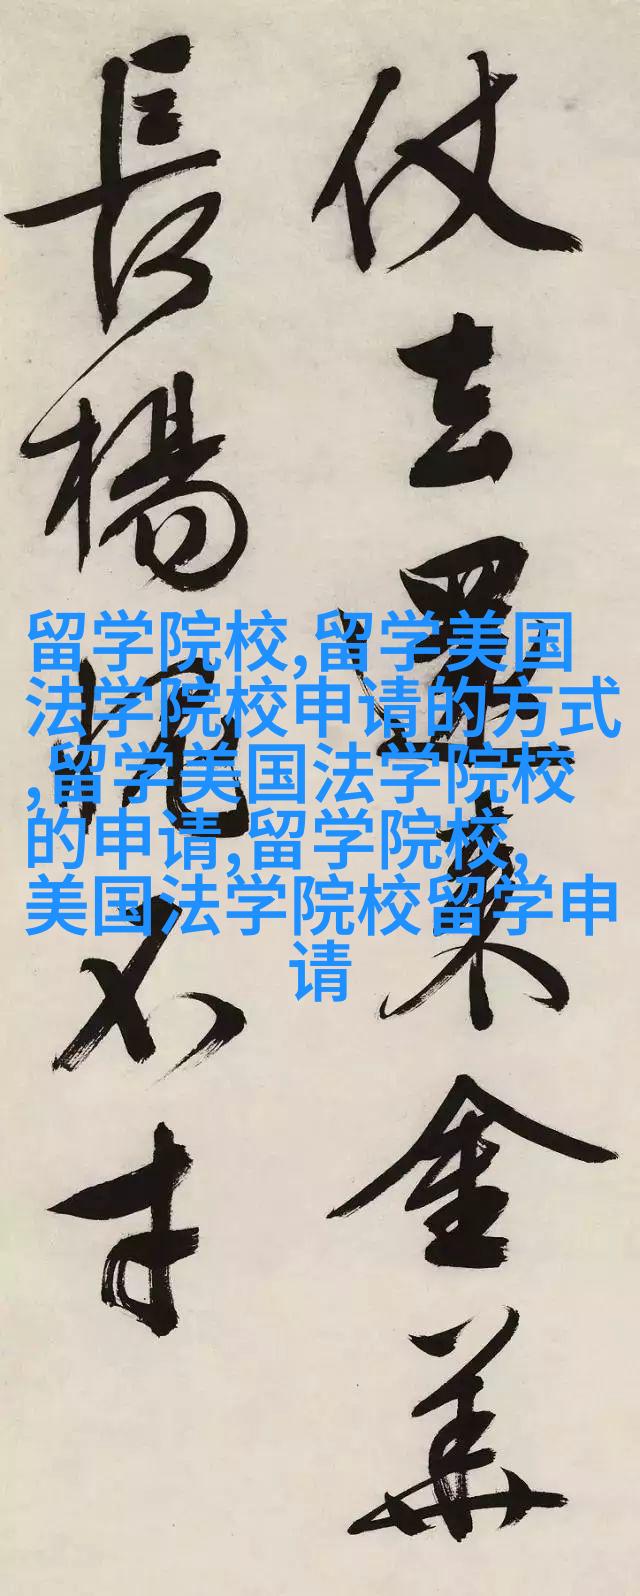 仗去還来金華
長楊愧不才
留学院校,留学美国
法学院校申请的方式
,留学美国法学院校
的申请,留学院校,
美国法学院校留学申
请